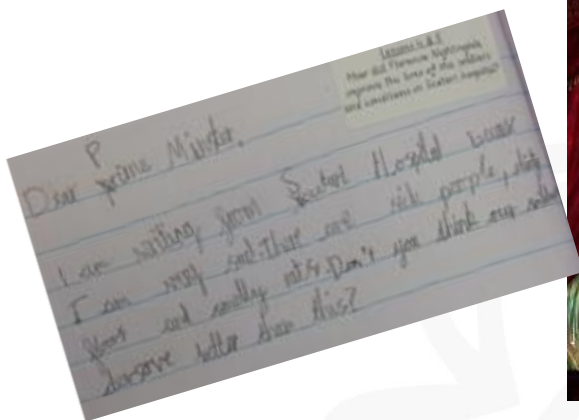 Lessons 4 & 5
How did Florence Nightingale
improve the lives of the soldiers
and conditions in Scutari hospital?
P
Dear prime Minister,
I am writing from Scutari Hospital
I am very sad. There are sick people, dirty
floor and smelly rats. Don't you think our
deserve better than this?